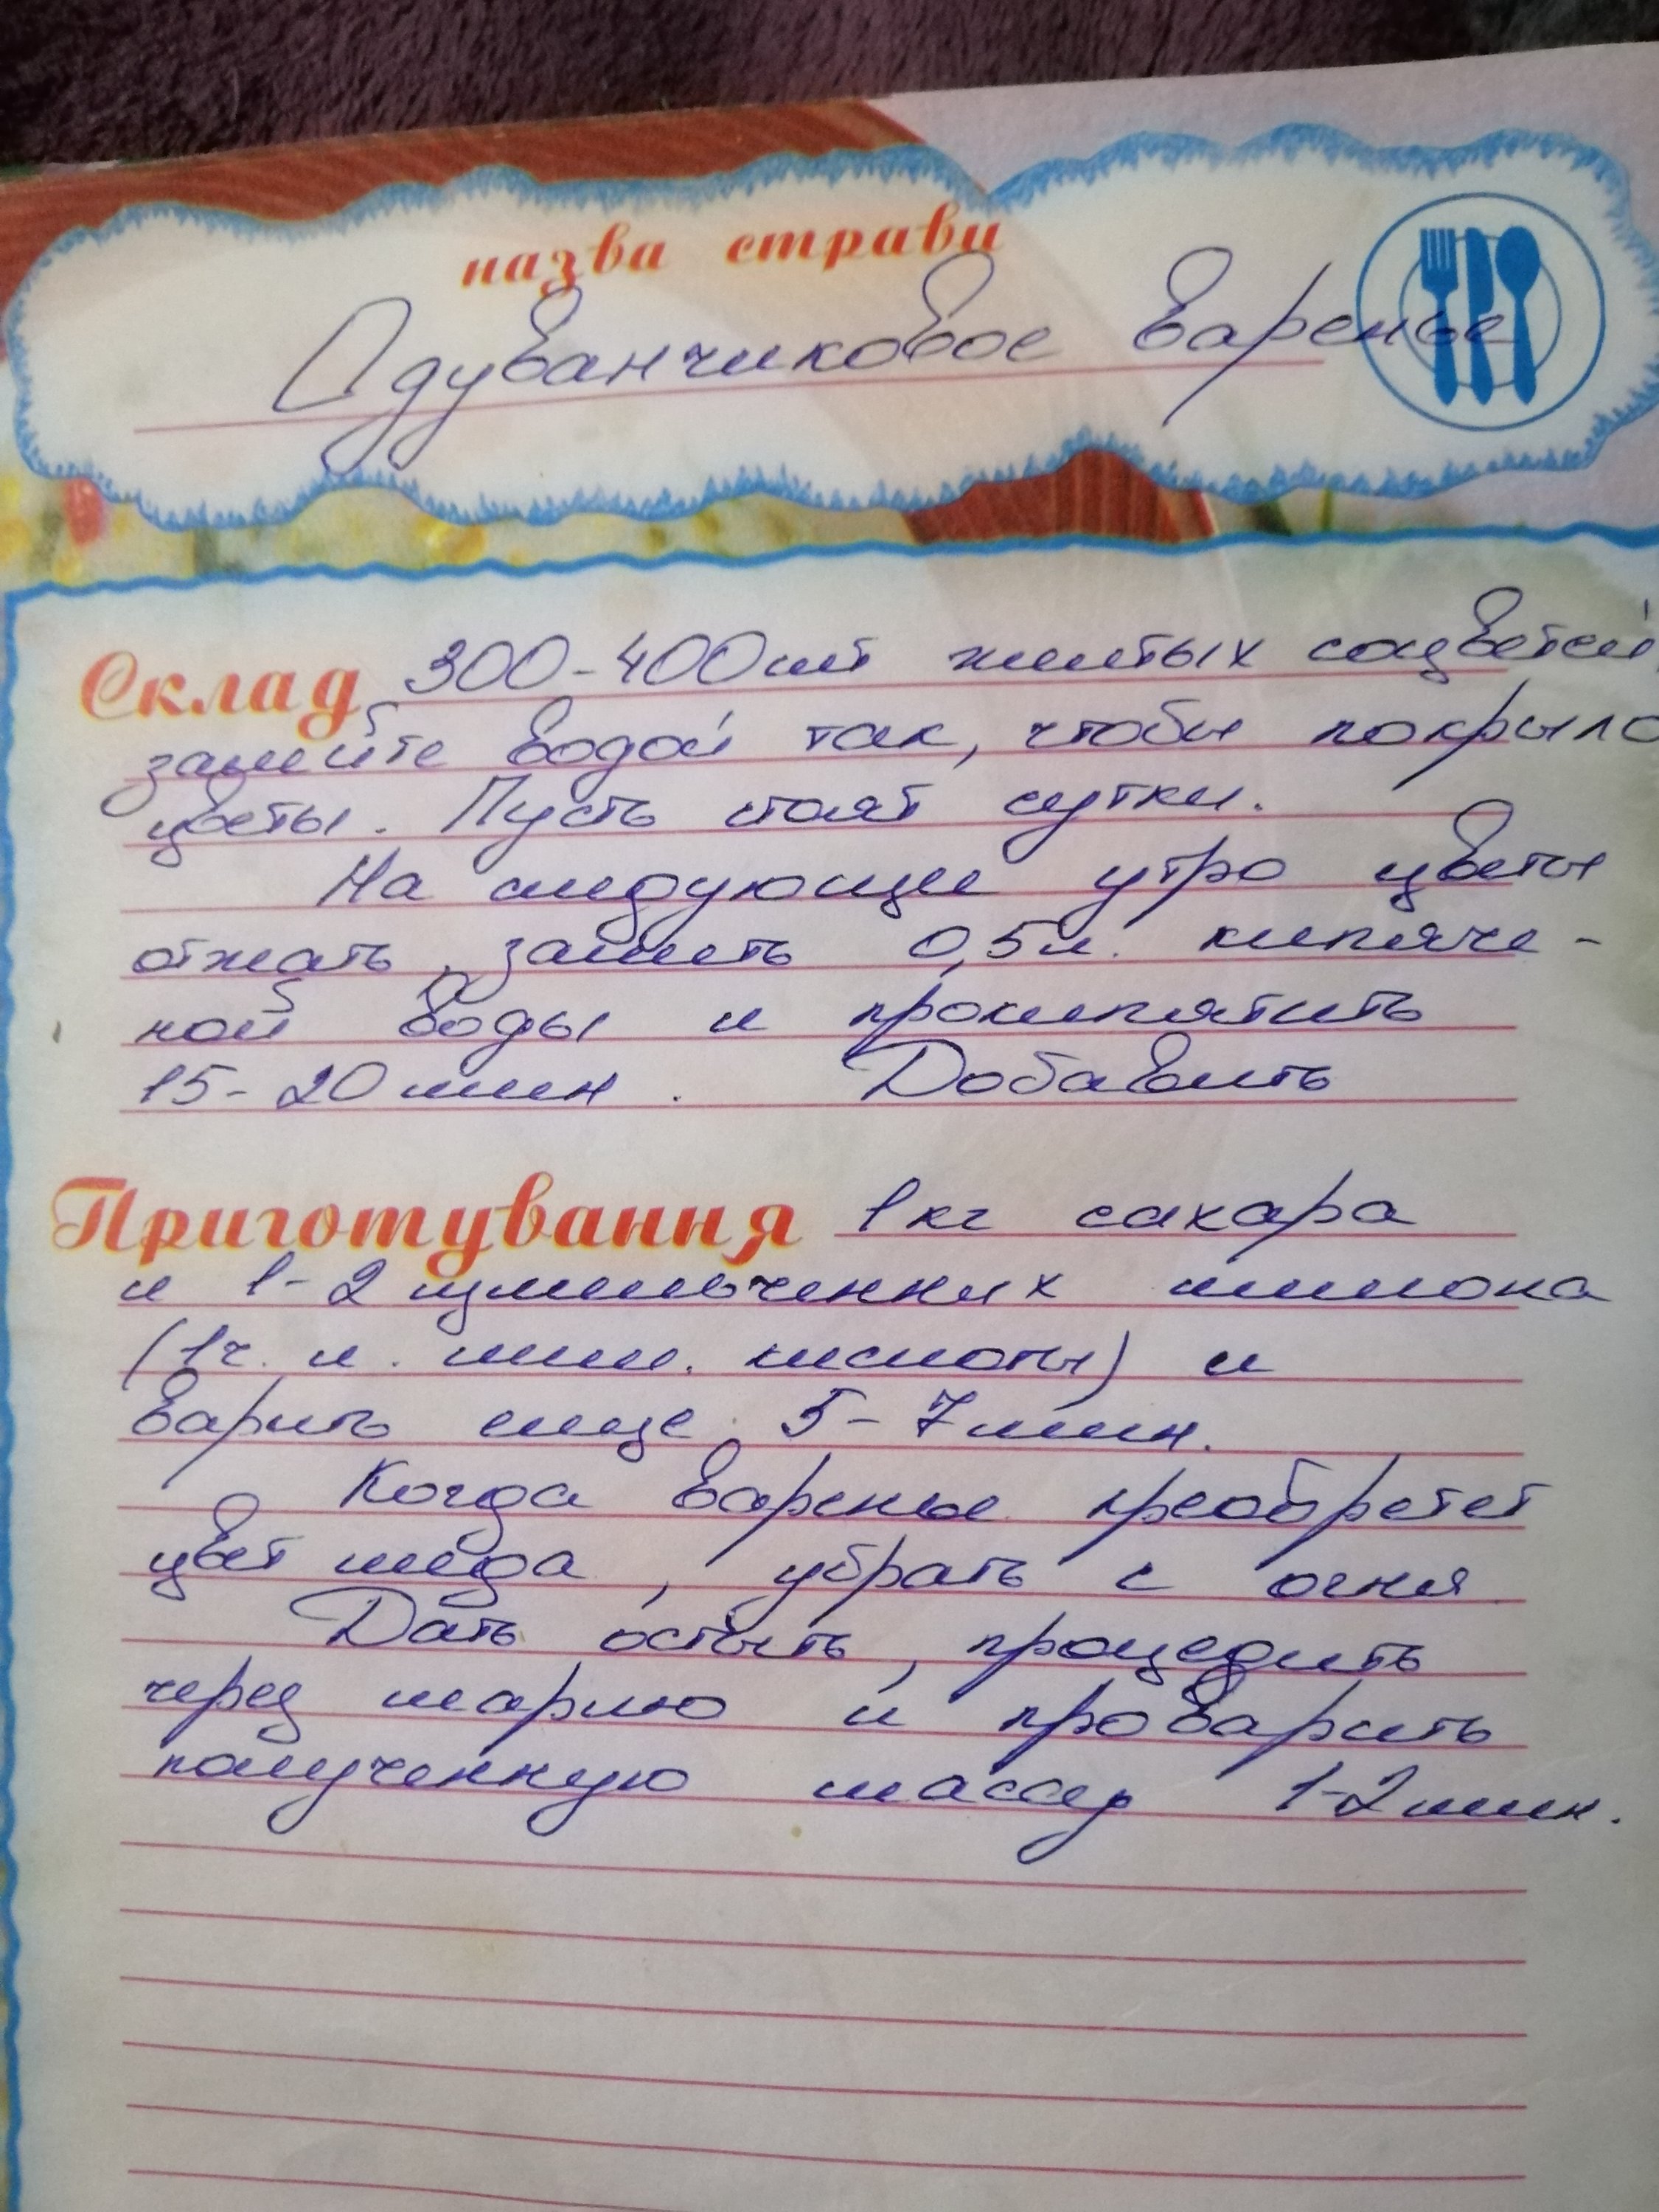 назва страви
Одуванчиковое варенье
Склад 300-400 шт желтых соцветий
залейте водой так, чтобы покрыло
цветы. Пусть стоят сутки.
На следующее утро цветы
отжать, залить 0,5 л. кипяче-
ной воды и прокипятить
15-20 мин. Добавить
Приготування 1 кг сахара
и 1-2 измельченных лимона
(1 ч. л. лим. кислоты) и
варить еще 5-7 мин.
Когда варенье преобретет
цвет меда, убрать с огня
Дать остыть, процедить
через марлю и проварить
полученную массу 1-2 мин.